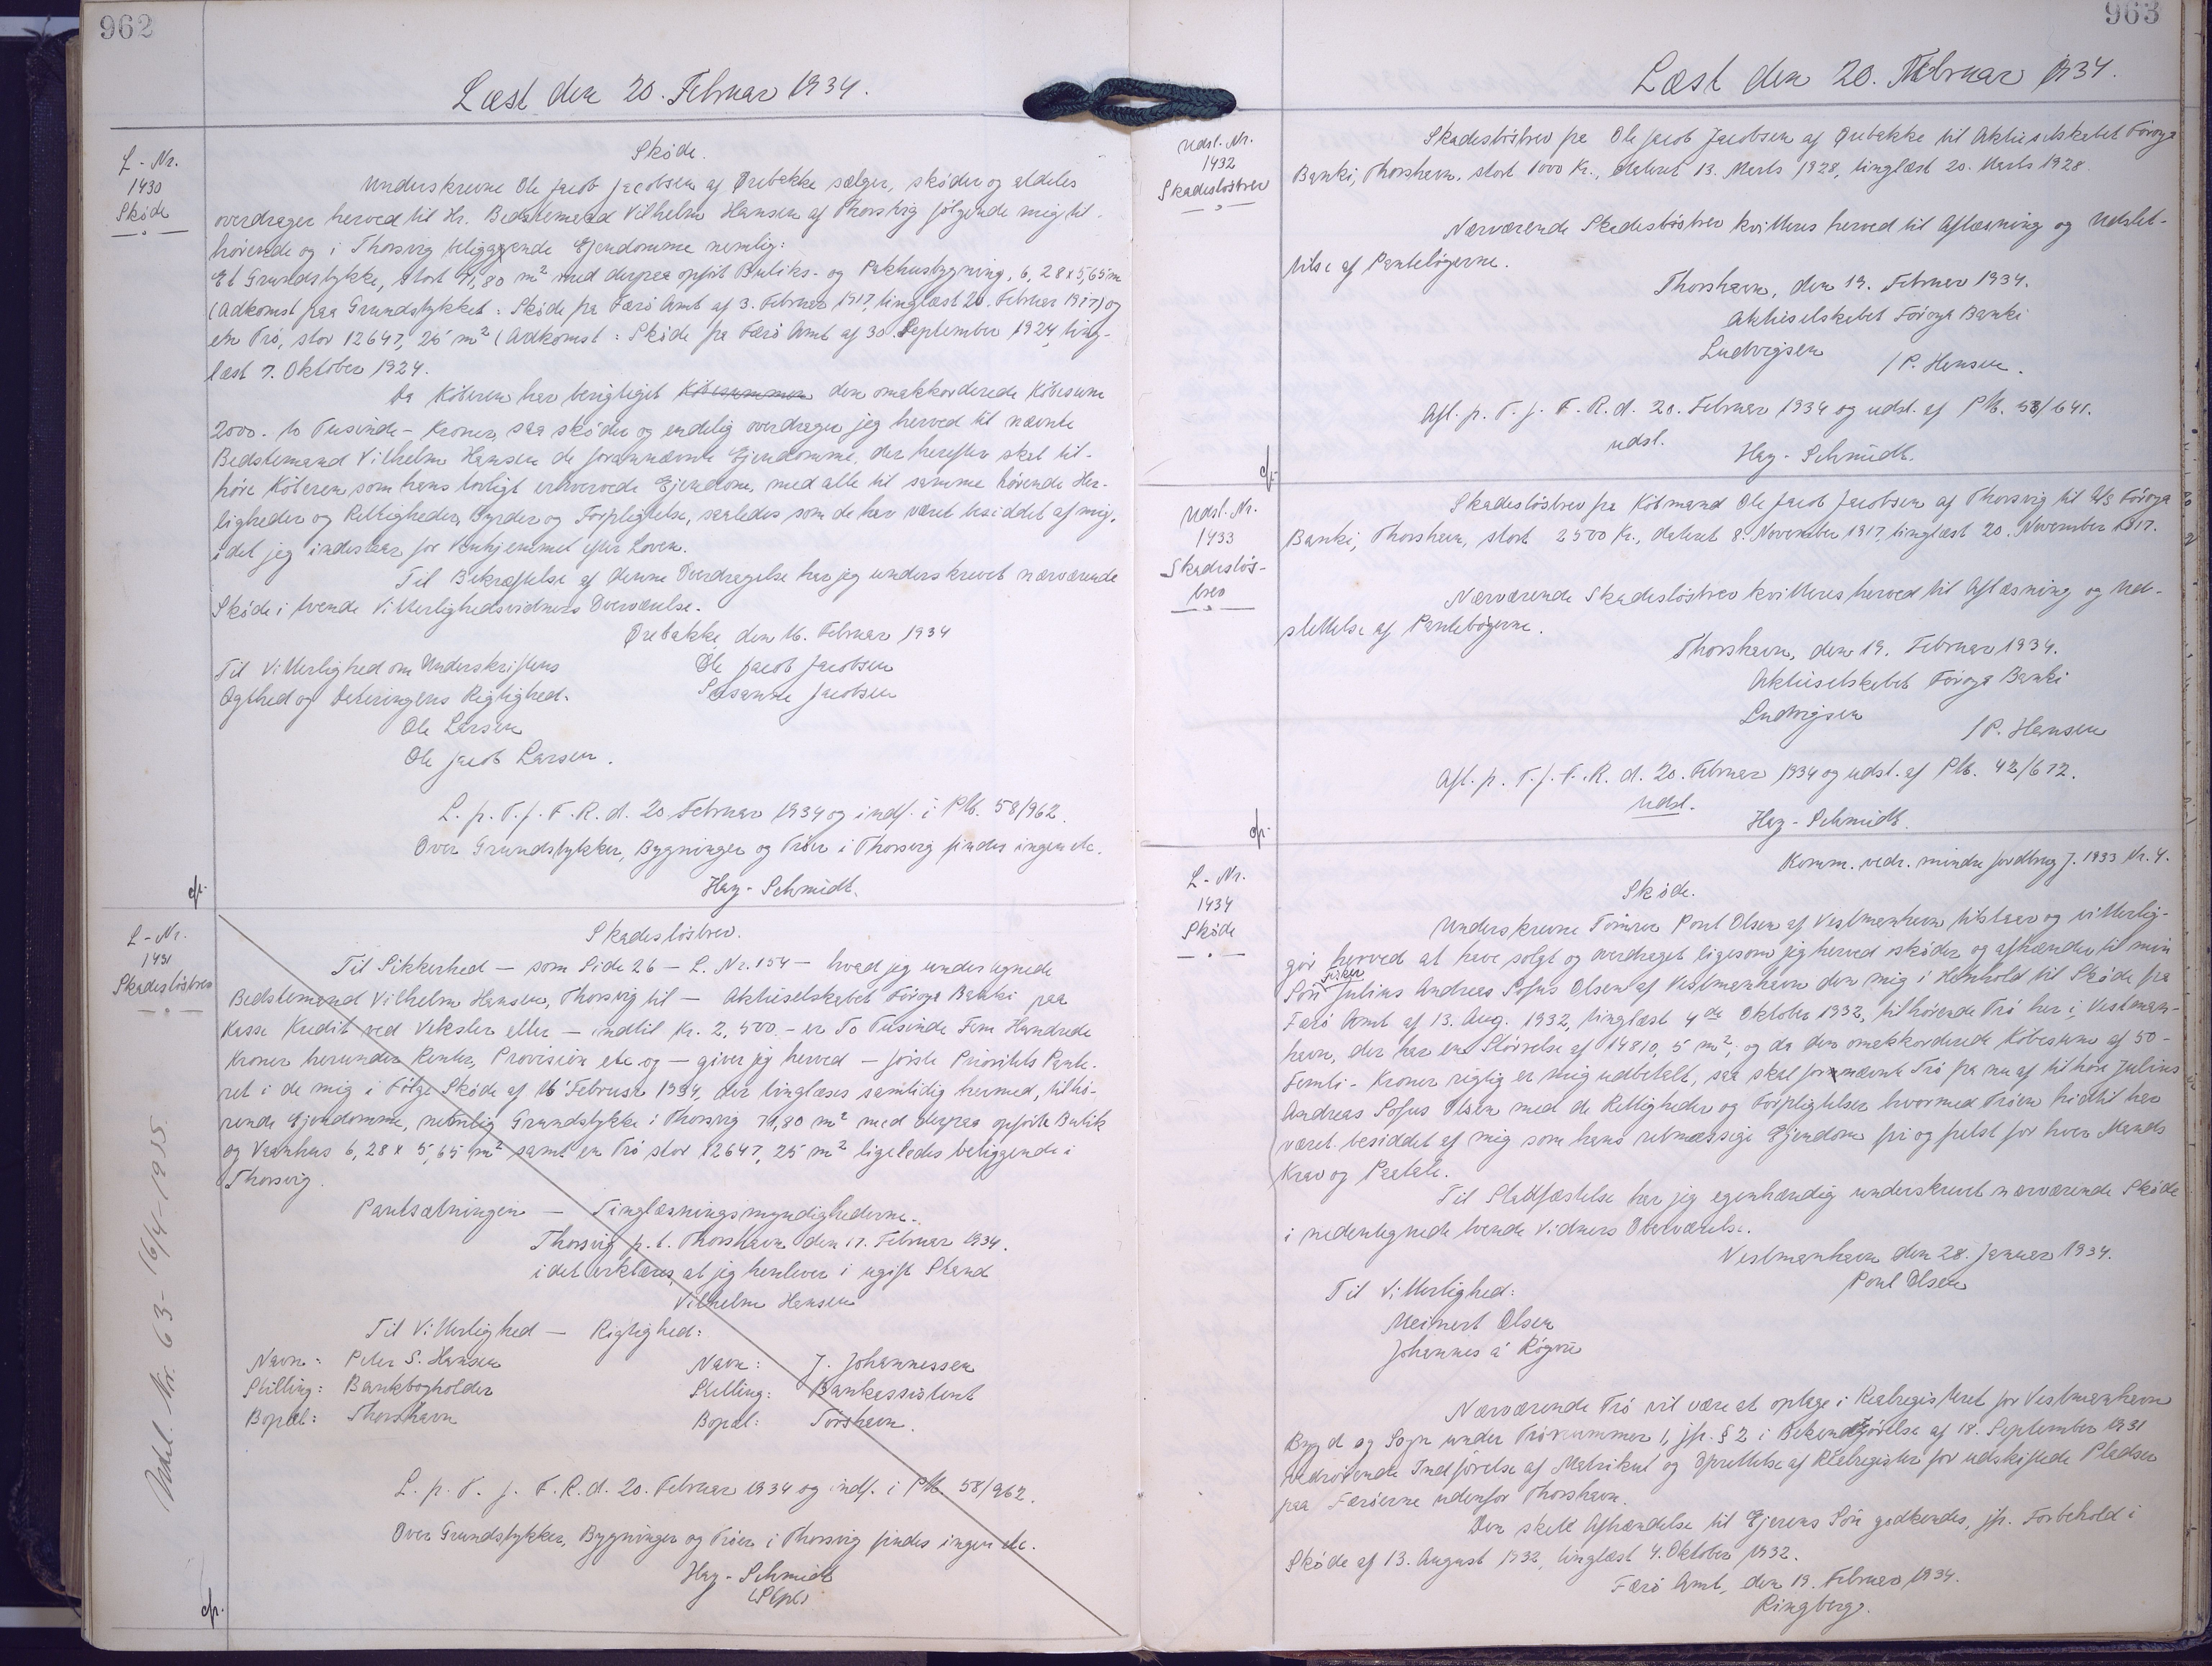 962
Læst den 20. Februar 1934.
L-Nr.
1430
Skøde
Skøde.
Underskrevne Ole Jacob Jacobsen af Ørebakke sælger, skøder og aldeles
overdrager herved til Hr. Bedstemand Vilhelm Hansen af Thorsvig følgende mig til-
hørende og i Thorsvig beliggende Ejendomme nemlig:
Et Grundstykke, stort 71,80 m² med derpaa opført Butiks- og Pakhusbygning, 6,28x5,65 m
(Adkomst paa Grundstykket: Skøde fra Færø Amt af 3. Februar 1917, tinglæst 20. Februar 1917) og
en Trö, stor 12647,25 m² (Adkomst: Skøde fra Færø Amt af 30. September 1924, ting-
læst 7. Oktober 1924.
Da Køberen har berigtiget Købesummen den omakkorderede Købesum
2000.- to Tusinde - Kroner, saa skøder og endelig overdrager jeg herved til nævnte
Bedstemand Vilhelm Hansen de forannævnte Ejendomme, der herefter skal til-
høre Køberen som hans lovligt erhvervede Ejendom, med alle til samme hørende Her-
ligheder og Rettigheder, Byrder og Forpligtelse, saaledes som de har været besiddet af mig,
idet jeg indestaar for Vanhjemmel efter Loven.
Til Bekræftelse af denne Overdragelse har jeg underskrevet nærværende
Skøde i tvende Vitterlighedsvidners Overværelse.
Ørebakke, den 16. Februar 1934
Til Vitterlighed om Underskriftens
Ole Jacob Jacobsen
Ægthed og Dateringens Rigtighed.
Susanne Jacobsen
Ole Larsen
Ole Jacob Larsen.
L. p. T. f. F. R. d. 20. Februar 1934 og indf. i Ptb. 58/962.
Over Grundstykker, Bygninger og Tröer i Thorsvig findes ingen etc.
Hay-Schmidt.
cfr.
L-Nr.
1431
Skadesløsbrev
Skadesløsbrev.
Til Sikkerhed — som Side 26 — L. Nr. 154 — hvad jeg undertegnede
Bedstemand Vilhelm Hansen, Thorsvig til — Aktieselskabet Föroya Banki paa
Kasse Kredit ved Veksler eller — indtil Kr. 2,500.- er To Tusinde Fem Hundrede
Kroner herunder Renter, Provision etc og — giver jeg herved — første Prioritets Pante-
ret i de mig i Følge Skøde af 16' Februar 1934, der tinglæses samtidig hermed, tilhø-
rende Ejendomme, nemlig Grundstykke i Thorsvig 71,80 m² med derpaa opført Butik
og Vaanhus 6,28 x 5,65 m² samt en Trö stor 12647,25 m² ligeledes beliggende i
Thorsvig.
Pantsætningen — Tinglæsningsmyndighederne.
Thorsvig p.t. Thorshavn den 17. Februar 1934.
idet erklæres, at jeg henlever i ugift Stand
Vilhelm Hansen
Til Vitterlighed — Rigtighed:
Navn: Peter S. Hansen
Navn: J. Johannessen
Stilling: Bankbogholder
Stilling: Bankassistent
Bopæl: Thorshavn
Bopæl: Tórshavn.
L. p. T. f. F. R. d. 20. Februar 1934 og indf. i Ptb. 58/962.
Over Grundstykker, Bygninger og Tröer i Thorsvig findes ingen etc.
Hay-Schmidt
cfr.
Udsl. Nr. 63 - 16/4-1935
963
Læst den 20. Februar 1934.
Udsl. Nr.
1432
Skadesløsbrev
Skadesløsbrev fra Ole Jacob Jacobsen af Ørebakke til Aktieselskabet Föroya
Banki, Thorshavn, stort 1000 Kr., dateret 13. Marts 1928, tinglæst 20. Marts 1928.
Nærværende Skadesløsbrev kvitteres herved til Aflæsning og Udslet-
telse af Pantebøgerne.
Thorshavn, den 19. Februar 1934.
Aktieselskabet Föroya Banki
Ludvigsen
/ P. Hansen.
Afl. p. T. f. F. R. d. 20. Februar 1934 og udsl. af Ptb. 53/641.
udsl.
Hay-Schmidt.
cfr.
Udsl. Nr.
1433
Skadesløs-
brev
Skadesløsbrev fra Købmand Ole Jacob Jacobsen af Thorsvig til A/S Föroya
Banki, Thorshavn, stort 2500 Kr., dateret 8. November 1917, tinglæst 20. November 1917.
Nærværende Skadesløsbrev kvitteres herved til Aflæsning og Ud-
slettelse af Pantebøgerne.
Thorshavn, den 19. Februar 1934.
Aktieselskabet Föroya Banki
Ludvigsen
/ P. Hansen
Afl. p. T. f. F. R. d. 20. Februar 1934 og udsl. af Ptb. 42/672.
Udsl.
Hay-Schmidt.
cfr.
Komm. vedr. mindre Jordbrug J. 1933 Nr. 4.
L-Nr.
1434
Skøde
Skøde.
Underskrevne Tømrer Poul Olsen af Vestmanhavn tilstaar og vitterlig-
gør herved at have solgt og overdraget ligesom jeg herved skøder og afhænder til min
Søn Fisker Julius Andreas Sofus Olsen af Vestmanhavn den mig i Henhold til Skøde fra
Færø Amt af 13. Aug. 1932, tinglæst 4de Oktober 1932, tilhørende Trö her i Vestman-
havn, der har en Størrelse af 14810,5 m², og da den omakkorderede Købesum af 50 -
Femti - Kroner rigtig er mig udbetalt, saa skal fornævnte Trö fra nu af tilhøre Julius
Andreas Sofus Olsen med de Rettigheder og Forpligtelser hvormed Tröen hidtil har
været besiddet af mig som hans retmæssige Ejendom fri og frelst for hver Mands
Krav og Paatale.
Til Stadfæstelse har jeg egenhændig underskrevet nærværende Skøde
i nedentegnede tvende Vidners Overværelse.
Vestmanhavn den 28. Januar 1934.
Til Vitterlighed:
Poul Olsen
Meinert Olsen
Johannes á Rógvu
Nærværende Trö vil være at optage i Realregistret for Vestmanhavn
Bygd og Sogn under Trönummer 1, jfr. § 2 i Bekendtgørelse af 18. September 1931
vedrørende Indførelse af Matrikul og Oprettelse af Realregister for udskiftede Pladser
paa Færøerne udenfor Thorshavn.
Den skete Afhændelse til Ejerens Søn godkendes, jfr. Forbehold i
Skøde af 13. August 1932, tinglæst 4. Oktober 1932.
Færø Amt, den 19. Februar 1934.
Ringberg.